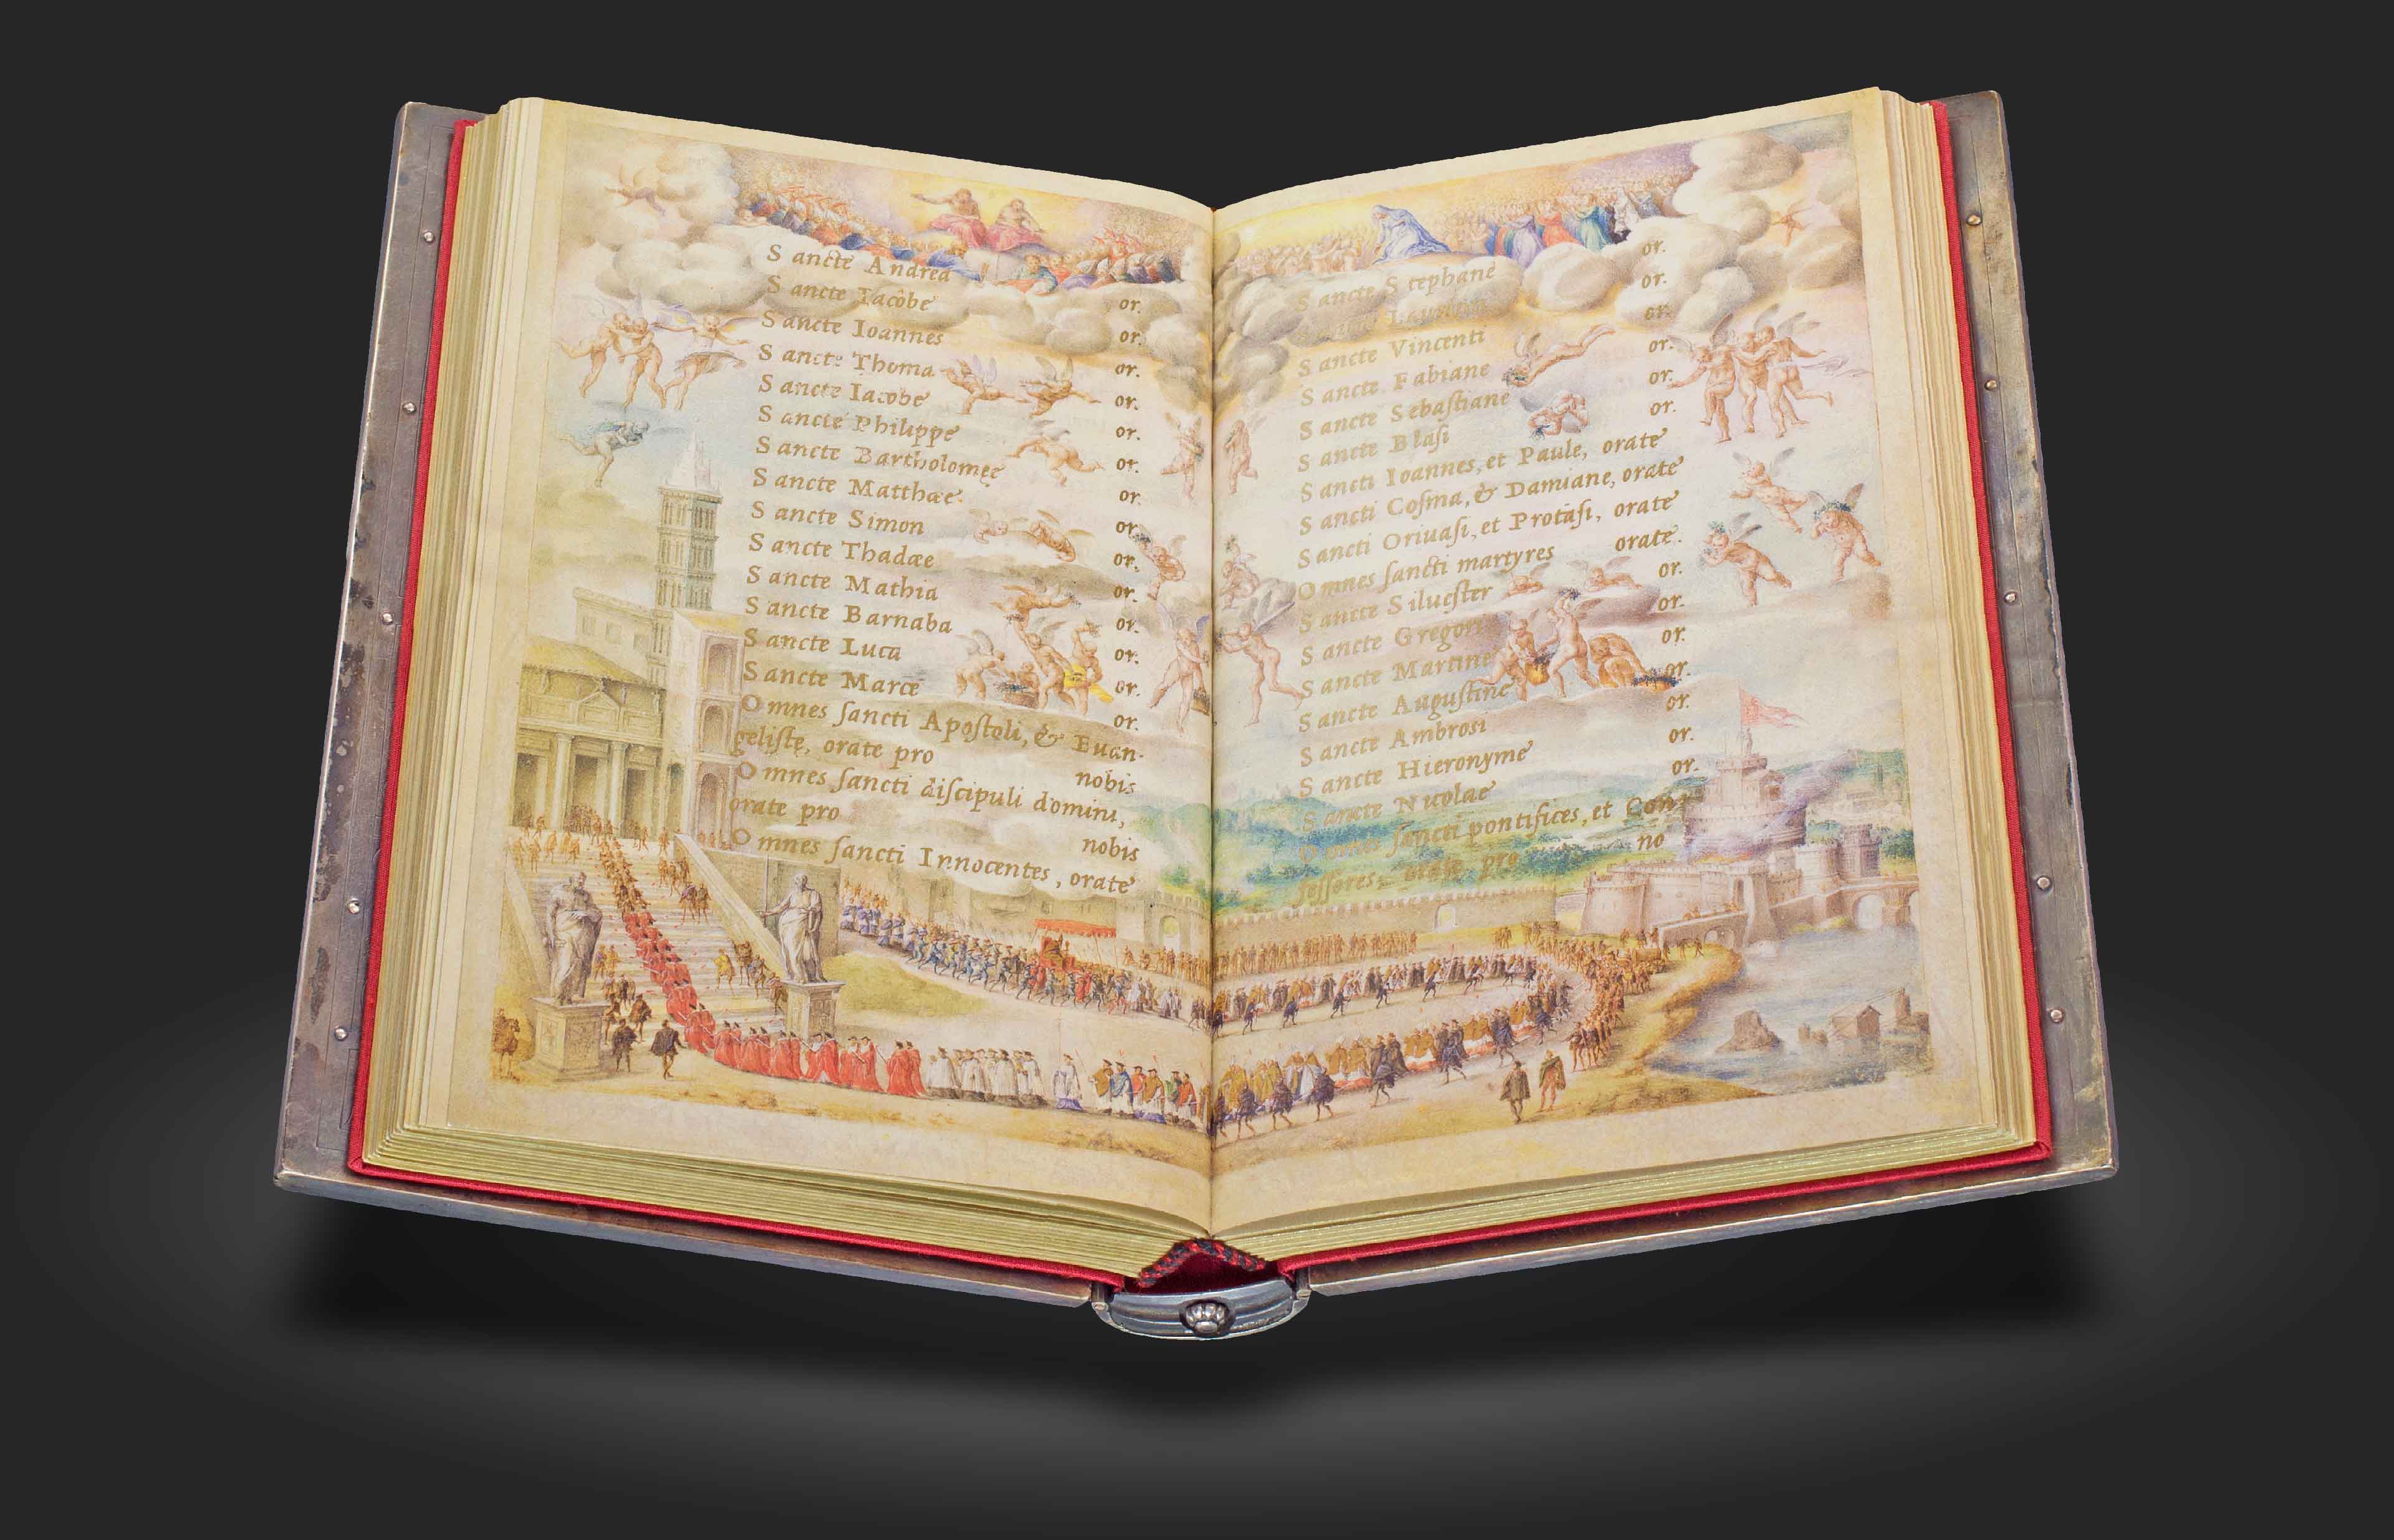 Sancte Andrea or.
Sancte Iacôbe or.
Sancte Ioannes or.
Sancte Thoma or.
Sancte Iacobe or.
Sancte Philippe or.
Sancte Bartholomeę or.
Sancte Matthæe or.
Sancte Simon or.
Sancte Thadæe or.
Sancte Mathia or.
Sancte Barnaba or.
Sancte Luca or.
Sancte Marce or.
Omnes ſancti Apoſtoli, & Euan-
geliſtę, orate pro nobis
Omnes ſancti diſcipuli domini,
orate pro nobis
Omnes ſancti Innocentes, orate
Sancte Stephane or.
Sancte Laurenti or.
Sancte Vincenti or.
Sancte Fabiane or.
Sancte Sebaſtiane or.
Sancte Blaſi or.
Sancti Ioannes, et Paule, orate
Sancti Coſma, & Damiane, orate
Sancti Oriuaſi, et Protaſi, orate
Omnes ſancti martyres orate.
Sancte Silueſter or.
Sancte Gregori or.
Sancte Martine or.
Sancte Auguſtine or.
Sancte Ambrosi or.
Sancte Hieronyme or.
Sancte Nicolae or.
Omnes ſancti pontifices, et Con-
feſſores, orate pro no